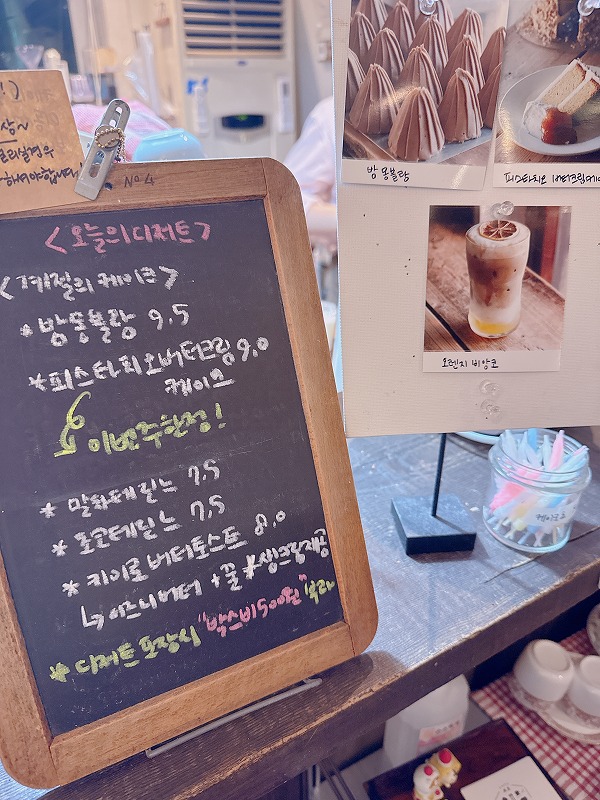 상~
No 4
<오늘의디저트>
<계절의 케이크>
*밤몽블랑 9.5
*피스타치오버터크림 9.0
케이크
이번주한정!
* 말차테린느 7.5
* 초코테린느 7.5
* 키이로버터토스트 8.0
↳ 이즈니버터 +꿀 *생크림제공
* 디저트 포장시 "박스비500원" 추가
밤 몽블랑
피스타치오 버터크림케이
오렌지 비앙코